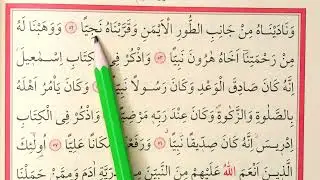 وَنَادَيْنَاهُ مِنْ جَانِبِ الطُّورِ الْاَيْمَنِ وَقَرَّبْنَاهُ نَجِيًّا ﴿٥٢﴾ وَوَهَبْنَا لَهُ
مِنْ رَحْمَتِنَٓا اَخَاهُ هٰرُونَ نَبِيًّا ﴿٥٣﴾ وَاذْكُرْ فِي الْكِتَابِ اِسْمٰعِيلَ
اِنَّهُ كَانَ صَادِقَ الْوَعْدِ وَكَانَ رَسُولًا نَبِيًّا ﴿٥٤﴾ وَكَانَ يَأْمُرُ اَهْلَهُ
بِالصَّلٰوةِ وَالزَّكٰوةِ وَكَانَ عِنْدَ رَبِّهِ مَرْضِيًّا ﴿٥٥﴾ وَاذْكُرْ فِي الْكِتَابِ
اِدْرِيسَ اِنَّهُ كَانَ صِدِّيقًا نَبِيًّا ﴿٥٦﴾ وَرَفَعْنَاهُ مَكَانًا عَلِيًّا ﴿٥٧﴾ اُولٰٓئِكَ
الَّذِينَ اَنْعَمَ اللّٰهُ عَلَيْهِمْ مِنَ النَّبِيِّنَ مِنْ ذُرِّيَّةِ اٰدَمَ وَمِمَّنْ حَمَلْنَا